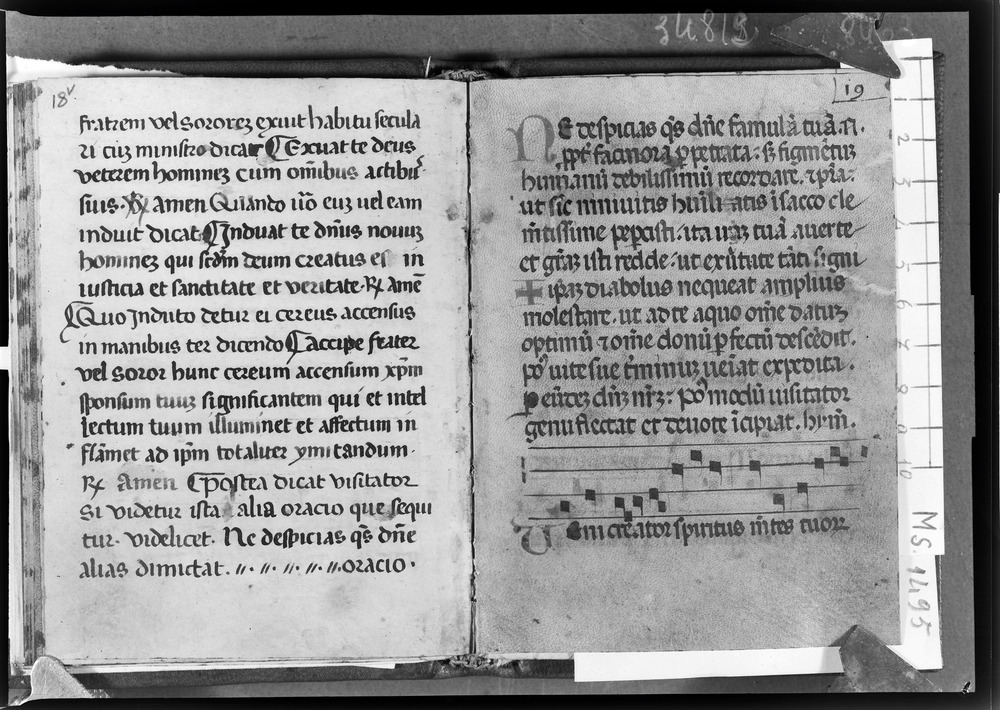 18v
fratrem vel sororez exuit habitu secula
ri cuz ministro dicat Exuat te deus
veterem hominez cum om̄ibus actibus
suis. ℟ Amen Quando u̅o euz uel eam
induit dicat Induat te dn̄us nouuz
hominez qui scdm̄ deum creatus es in
iusticia et sanctitate et veritate. ℟ Amē
Quo Induto detur ei cereus accensus
in manibus ter dicendo Accipe frater
vel soror hunc cereum accensum xp̄m
sponsum tuuz significantem qui et intel
lectum tuum illuminet et affectum in
flāmet ad ip̄m totaliter ymitandum.
℟ Amen Postea dicat visitator
Si videtur ista alia oracio que sequi
tur. videlicet. Ne despicias q̄s dn̄e
alias dimictat. oracio.
19
NE despicias q̄s dn̄e famulā tuā. N.
ppt̄ facinora ppetrata: s; figmentuz
humanū debilissimū recordare.
ut sic niniuitis humiliatis isacco cle
m̄tissime pepcisti. ita iraz tuā auerte
et grāz isti redde. ut exūtute tāti signi
+ ipaz diabolus nequeat amplius
molestare. ut ad te a quo om̄e datuz
optimū ⁊ om̄e donū pfectū descēdit.
po⁹ uite sue t̄minuz ueīat expedita.
P eūdez dn̄z nr̄z: po⁹ modū uisitator
genuflectat et deuote īcipiat. hym̄.
Veni creator spiritus m̄tes tuoꝝ
MS. 1495
1 2 3 4 5 6 7 8 9 10